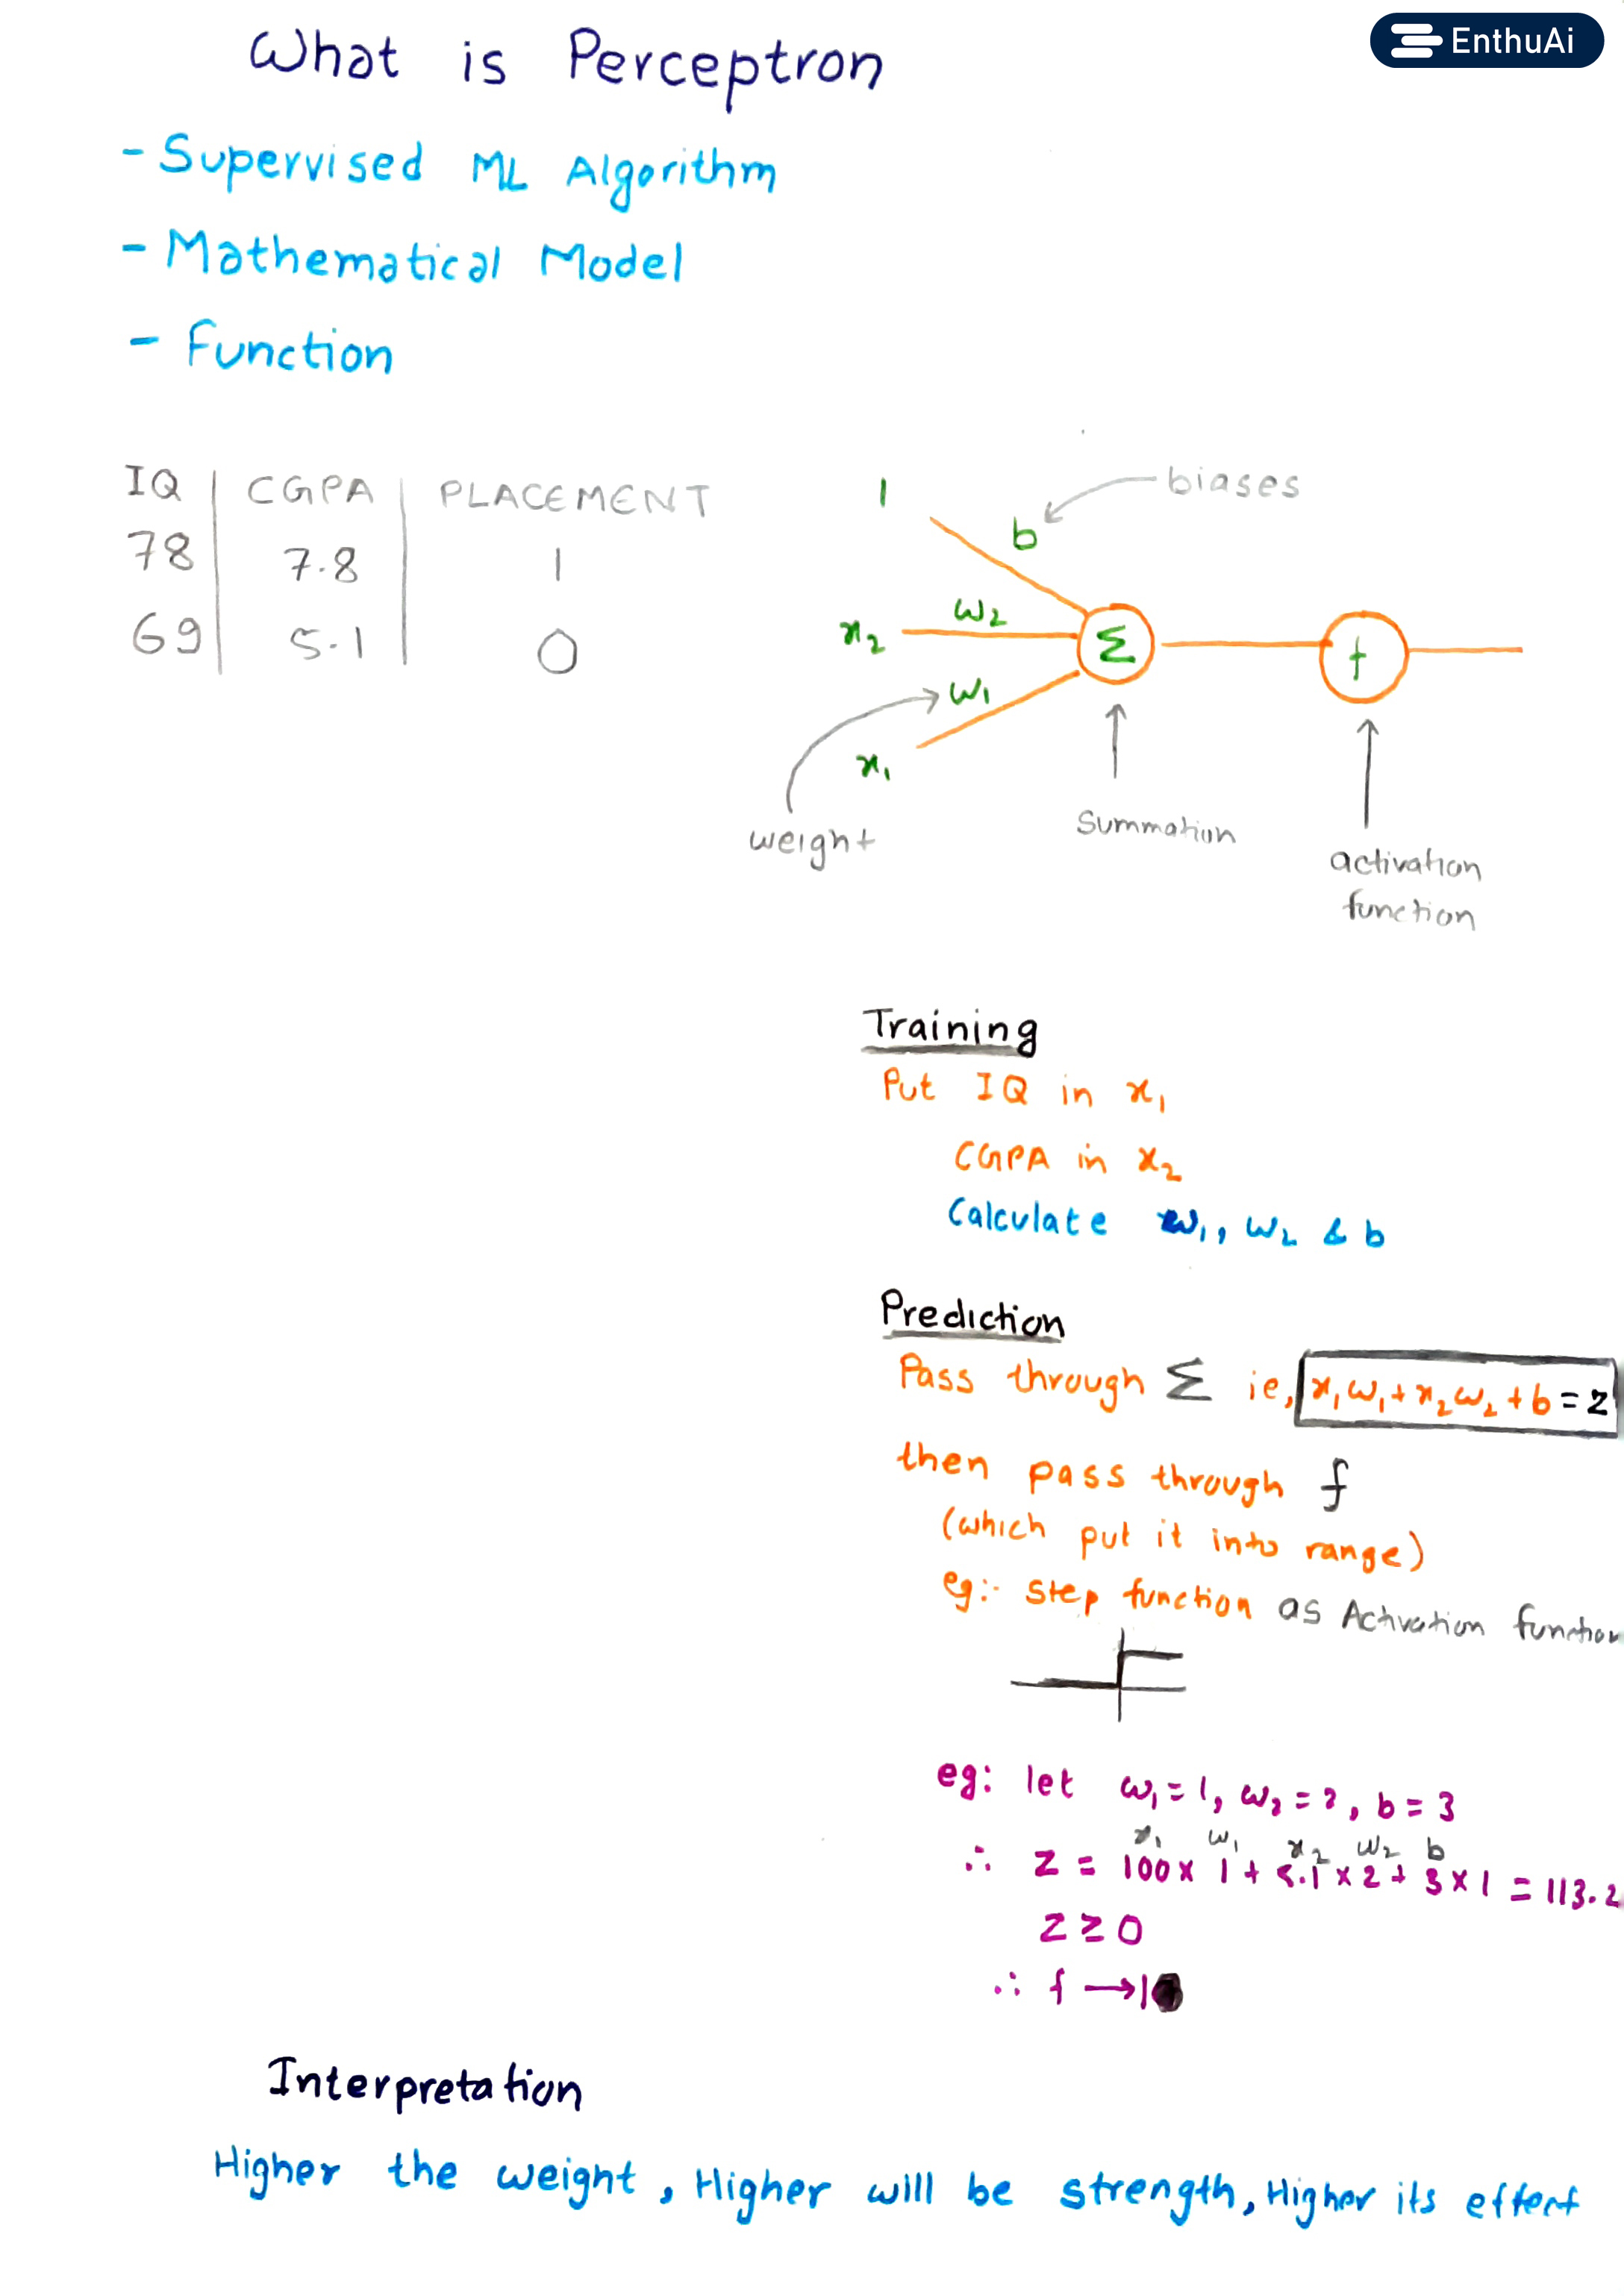 EnthuAi
What is Perceptron
- Supervised ML Algorithm
- Mathematical Model
- Function
IQ CGPA PLACEMENT
78 7.8 1
69 5.1 0
1 b biases
x₂ w₂ Σ f
w₁
x₁
weight
Summation
activation
function
Training
Put IQ in x₁
CGPA in x₂
Calculate w₁, w₂ & b
Prediction
Pass through Σ ie, x₁w₁+x₂w₂+b=z
then pass through f
(which put it into range)
eg:- Step function as Activation function
eg: let w₁=1, w₂=2, b=3
x₁ w₁ x₂ w₂ b
∴ z = 100×1+5.1×2+3×1=113.2
z≥0
∴ f→1
Interpretation
Higher the weight, Higher will be strength, Higher its effect